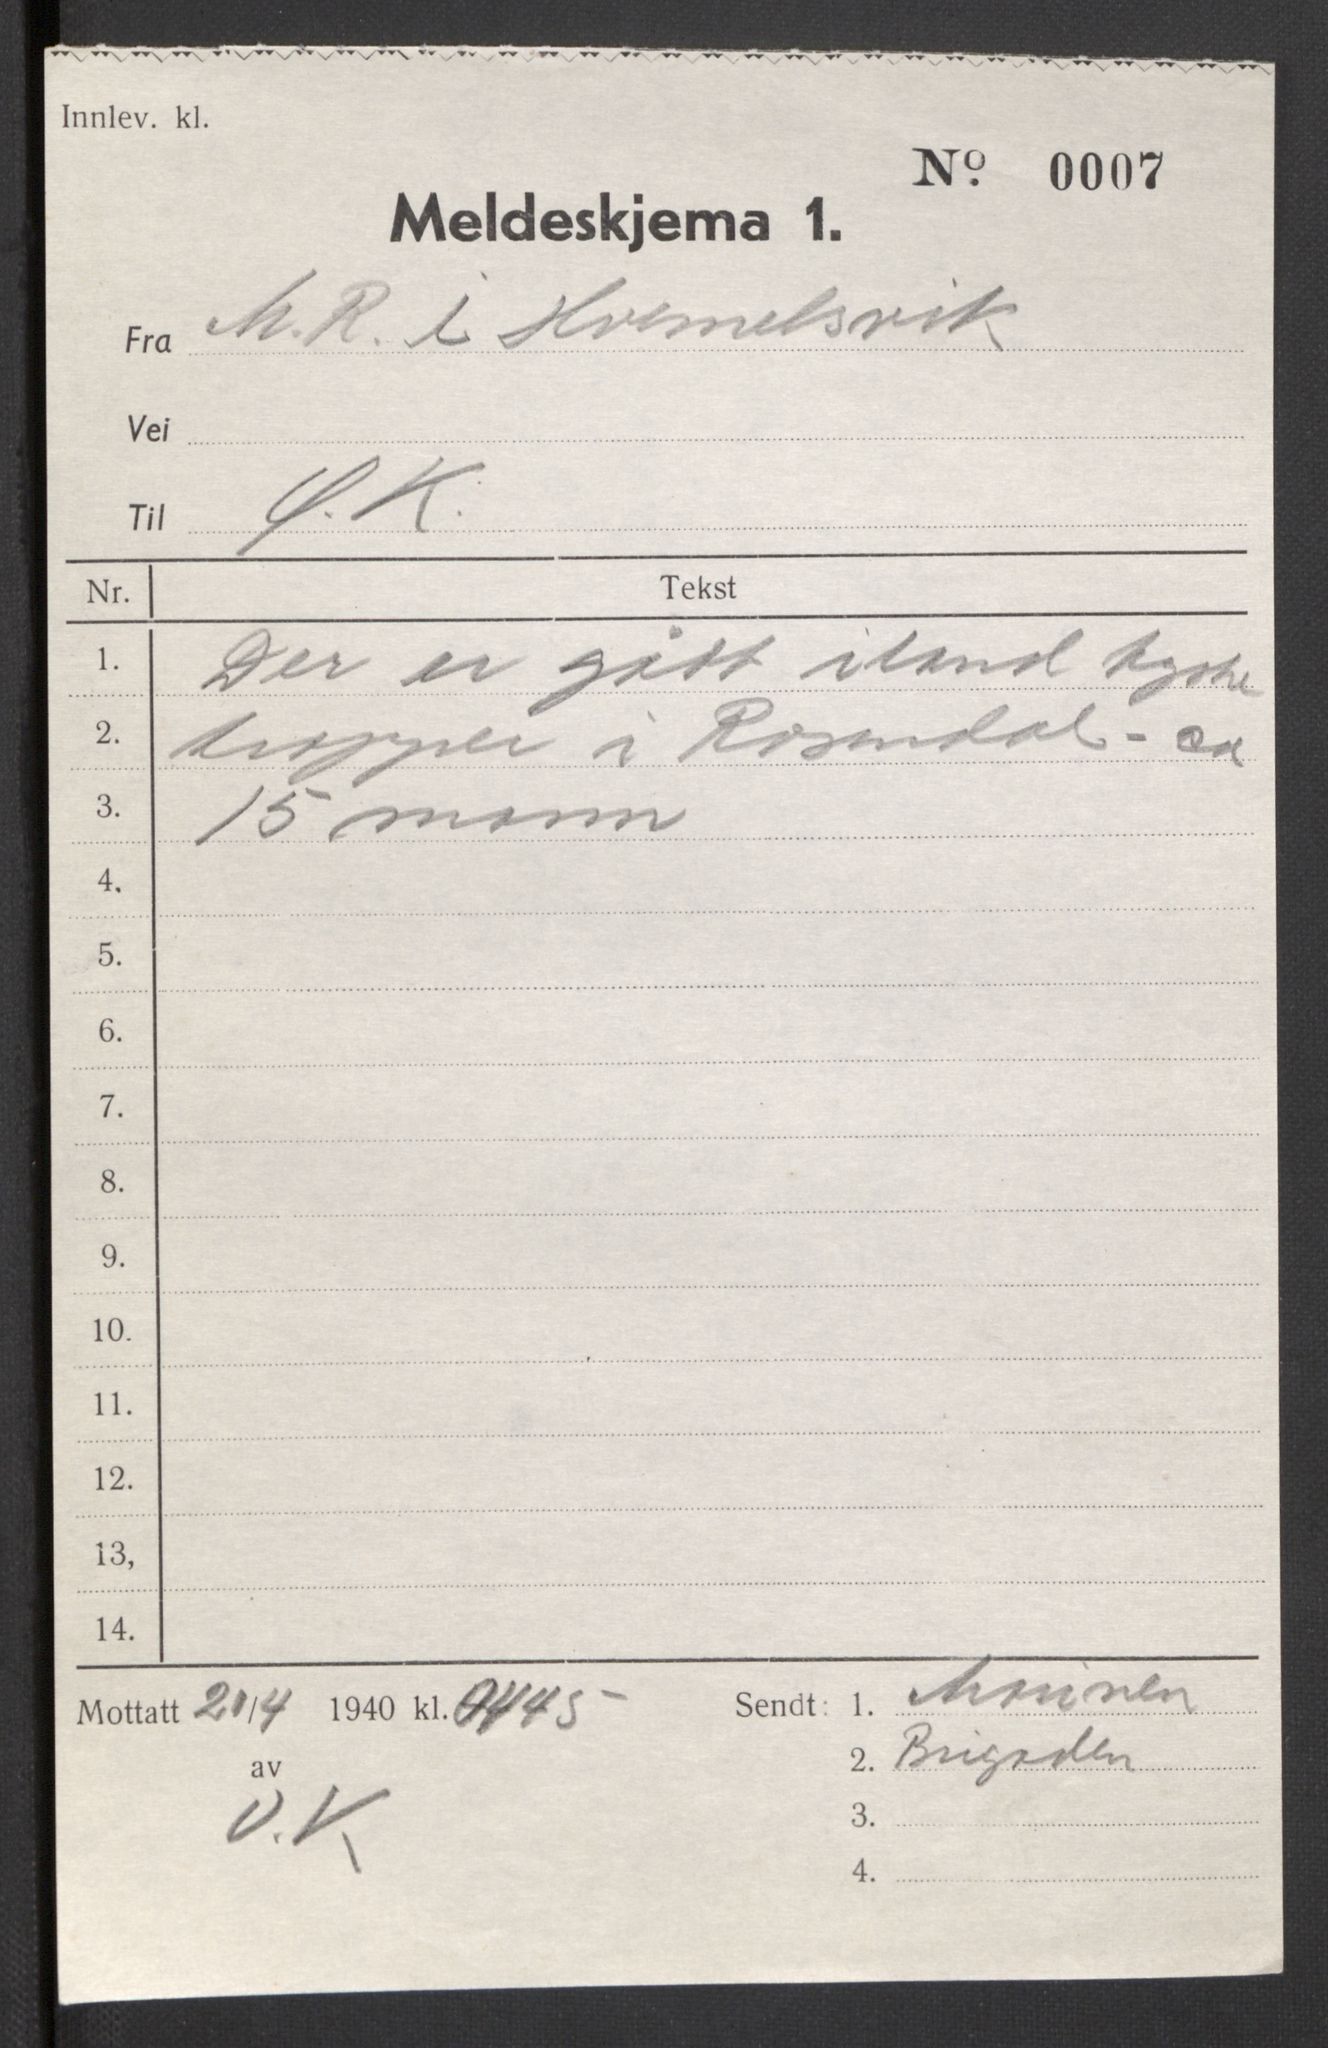 Innlev. kl.
Nº. 0007
Meldeskjema 1.
Fra M.R. i
Vei
Til Ø.K.
Nr. Tekst
1. Der er gått iland tyske
2. tropper i Rosendal - ca
3. 15 mann
4.
5.
6.
7.
8.
9.
10.
11.
12.
13,
14.
Mottatt 21/4 1940 kl. 0445 Sendt: 1. Marinen
av 2. Brigaden
O.K. 3.
4.